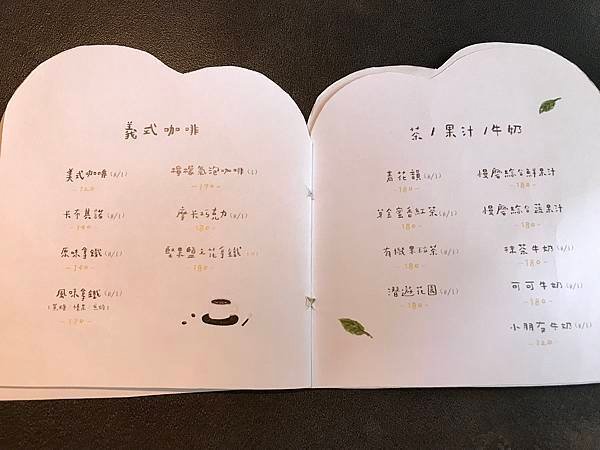 義式咖啡
美式咖啡(H/I)
-120-
卡布其諾(H/I)
-140-
原味拿鐵(H/I)
-140-
風味拿鐵(H/I)
-170-
檸檬氣泡咖啡(I)
-170-
摩卡巧克力(H/I)
-180-
堅果盟主花拿鐵
-180-
茶/果汁/牛奶
青花韻(H/I)
-180-
羊金蜜香紅茶(H/I)
-180-
有機果粒茶(H/I)
-180-
潛遊花園(H/I)
-180-
慢磨綜合鮮果汁
-180-
慢磨綜合蔬果汁
-180-
抹茶牛奶(H/I)
-180-
可可牛奶(H/I)
-180-
小朋友牛奶(H/I)
-120-